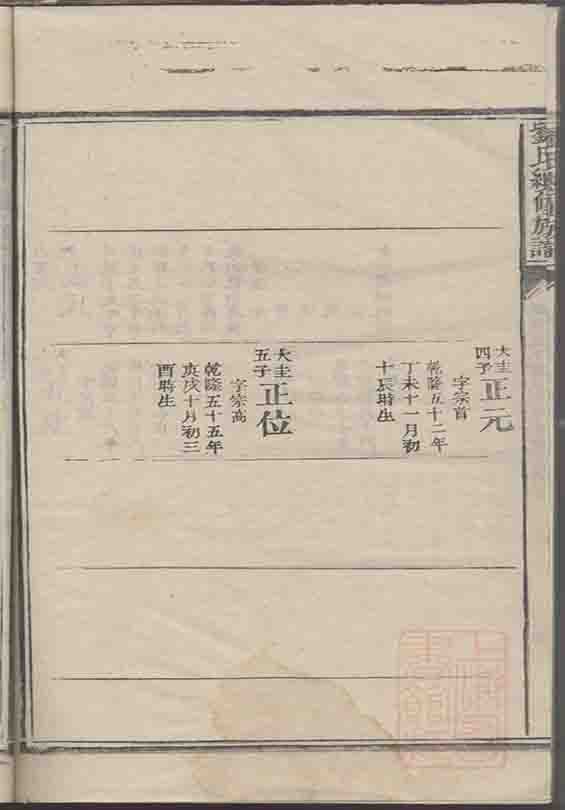 劉氏續修族譜
大圭
四子
正元
字宗首
乾隆五十二年
丁未十一月初
十辰時生
大圭
五子
正位
字宗高
乾隆五十五年
庚戌十月初三
酉時生